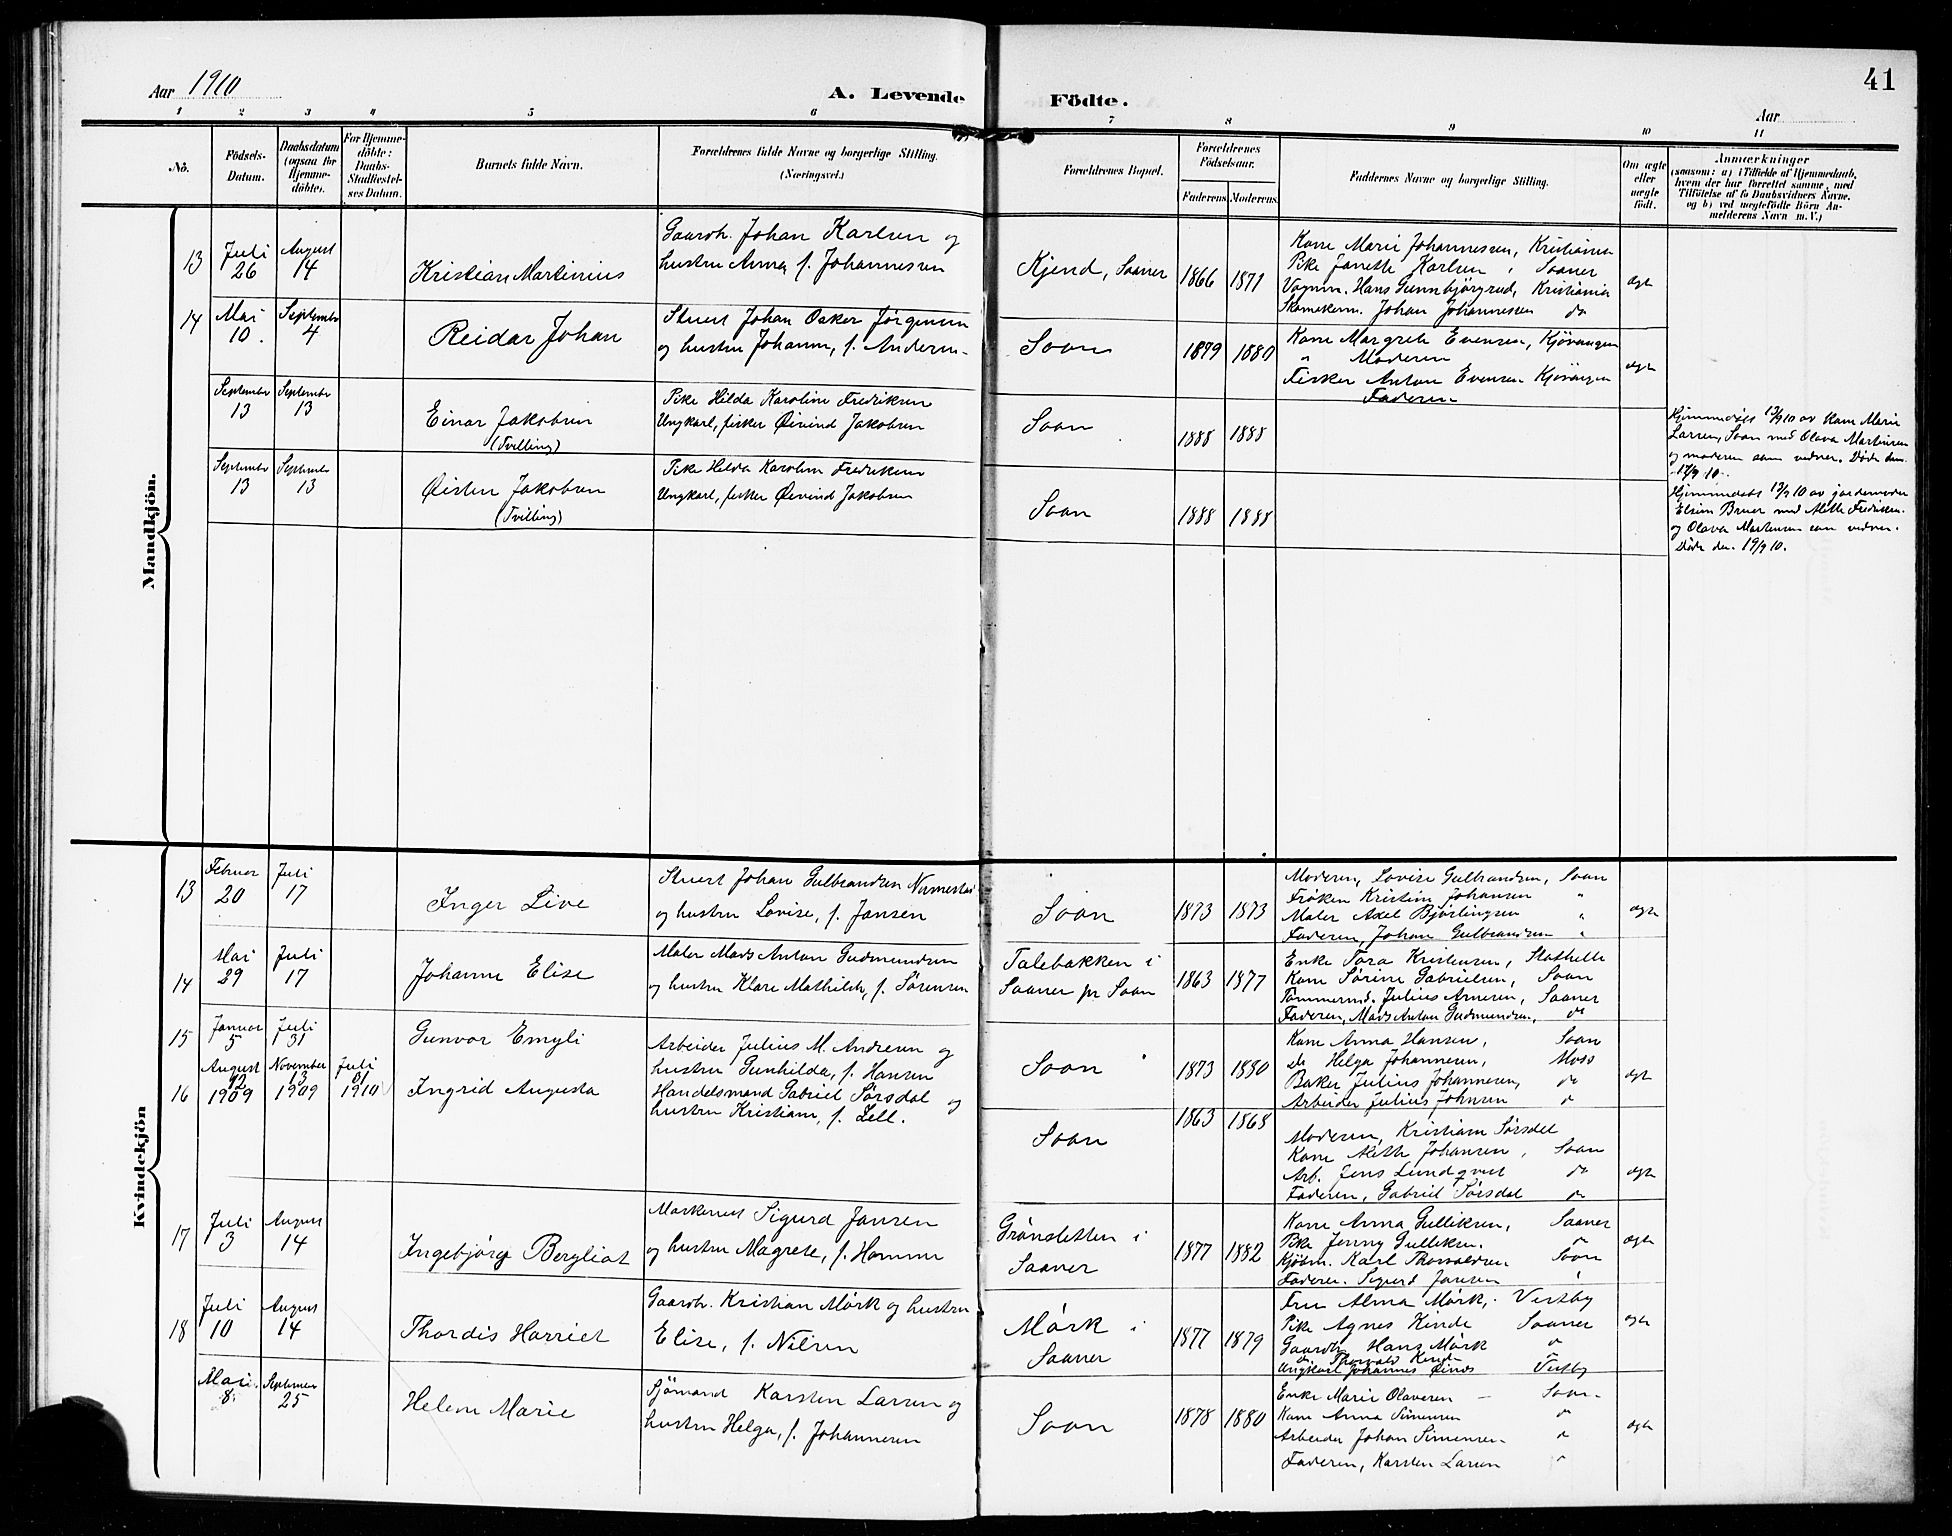 41
Aar 1910
A. Levende Födte.
Aar
1 2 3 4 5 6 7 8 9 10 11
No.
Födsels-Datum.
Daabsdatum (ogsaa for Hjemme-döbte).
For Hjemme-döbte: Daabs-Stadfæstel-ses Datum.
Barnets fulde Navn.
Forældrenes fulde Navne og borgerlige Stilling.
(Næringsvei.)
Forældrenes Bopæl.
Forældrenes Födselsaar.
Faderens Moderens
Faddernes Navne og borgerlige Stilling.
Om ægte eller uægte födt.
Anmærkninger
(saasom: a) i Tilfælde af Hjemmedaab,
hvem der har forrettet samme, med
Tilföielse af to Daabsvidners Navne.
og b) ved uægtefödte Börn An-
melderens Navn m. V.)
Mandkjön.
13 Juli 26 August 14
Kristian Martinius
Gaardb. Johan Karlsen og
hustru Anna f. Johannesen
Kjend, Saaner 1866 1871
Kone Marie Johannessen, Kristiania
Pike Janette Karlsen, Saaner
Vognm. Hans Gunnbjørgrud, Kristiania
Skomakerm. Johan Johannessen do
ægte
14 Mai 10. September 4
Reidar Johan
Stuert Johan Oskar Jørgensen
og hustru Johanne, f. Andersen
Soon 1879 1880
Kone Margrete Evensen, Kjøvangen
" Moderen
Fisker Anton Evensen Kjøvangen
Faderen
ægte
September 13 September 13
Einar Jakobsen
(Tvilling)
Pike Hilda Karoline Fredriksen
Ungkarl, fisker Øivind Jakobsen
Soon 1888 1888
Hjemmedøbt 13/9 10 av Kone Marie
Larsen, Soon med Olava Martinsen
og moderen som vidner. Døde den
17/9 10.
September 13 September 13
Øisten Jakobsen
(Tvilling)
Pike Hilda Karoline Fredriksen
Ungkarl, fisker Øivind Jakobsen
Soon 1888 1888
Hjemmedøbt 13/9 10 av jordemoder
Elvine Bruer med Mille Fredriksen
og Olava Martinsen som vidner.
Døde den 19/9 10.
Kvindekjön
13 Februar 20 Juli 17
Inger Live
Stuert Johan Gulbrandsen Nermestad
og hustru Lovise, f. Jansen
Soon 1873 1873
Moderen, Lovise Gulbrandsen, Soon
Frøken Kristine Johansen "
Maler Axel Bjørlingsen "
Faderen, Johan Gulbrandsen "
ægte
14 Mai 29 Juli 17
Johanne Elise
Maler Mads Anton Gudmundsen
og hustru Klara Mathilde, f. Sørensen
Talebakken i
Saaner pr Soon 1863 1877
Enke Tora Kristensen, Stathelle
Kone Sørine Gabrielsen, Soon
Tømmermd. Julius Arnesen, Saaner
Faderen, Mads Anton Gudmundsen, do
15 Januar 5 Juli 31
Gunvor Emyli
Arbeider Julius M. Andresen og
hustru Gunhilda, f. Hansen
Soon 1873 1880
Kone Anna Hansen, Soon
do Helga Johannesen, Moss
Baker Julius Johannesen, do
Arbeider Julius Johnsen do
ægte
16 August 12 1909 November 13 1909 Juli 31 1910
Ingrid Augusta
Handelsmand Gabriel Sørsdal og
hustru Kristiane, f. Zell.
Soon 1863 1868
Moderen, Kristiane Sørsdal
Kone Mette Johansen, Soon
Arb. Jens Lundqvist do
Faderen, Gabriel Sørsdal do
ægte
17 Juli 3 August 14
Ingebjørg Bergliot
Maskinist Sigurd Jansen
og hustru Magrete, f. Homme
Grønsletten i
Saaner 1877 1882
Kone Anna Gulliksen, Saaner
Pike Jenny Gulliksen. do
Kjøbm. Karl Thorvaldsen Soon
Faderen. Sigurd Jansen "
ægte
18 Juli 10 August 14
Thordis Harriet
Gaardbr. Kristian Mørk og hustru
Elise, f. Nilsen
Mørk i
Saaner 1877 1879
Fru Alma Mørk, Vestby
Pike Agnes Kinde Saaner
Gaardbr. Hans Mørk do
do Thorvald Kind do
Ungkarl Johannes Vestby
ægte
Mai 8. September 25
Helene Marie
Sjømand Karsten Larsen og
hustru Helga, f. Johannesen
Soon 1878 1880
Enke Marie Olavesen - Soon
Kone Anna Simensen do
Arbeider Johan Simensen do
Faderen, Karsten Larsen "
ægte